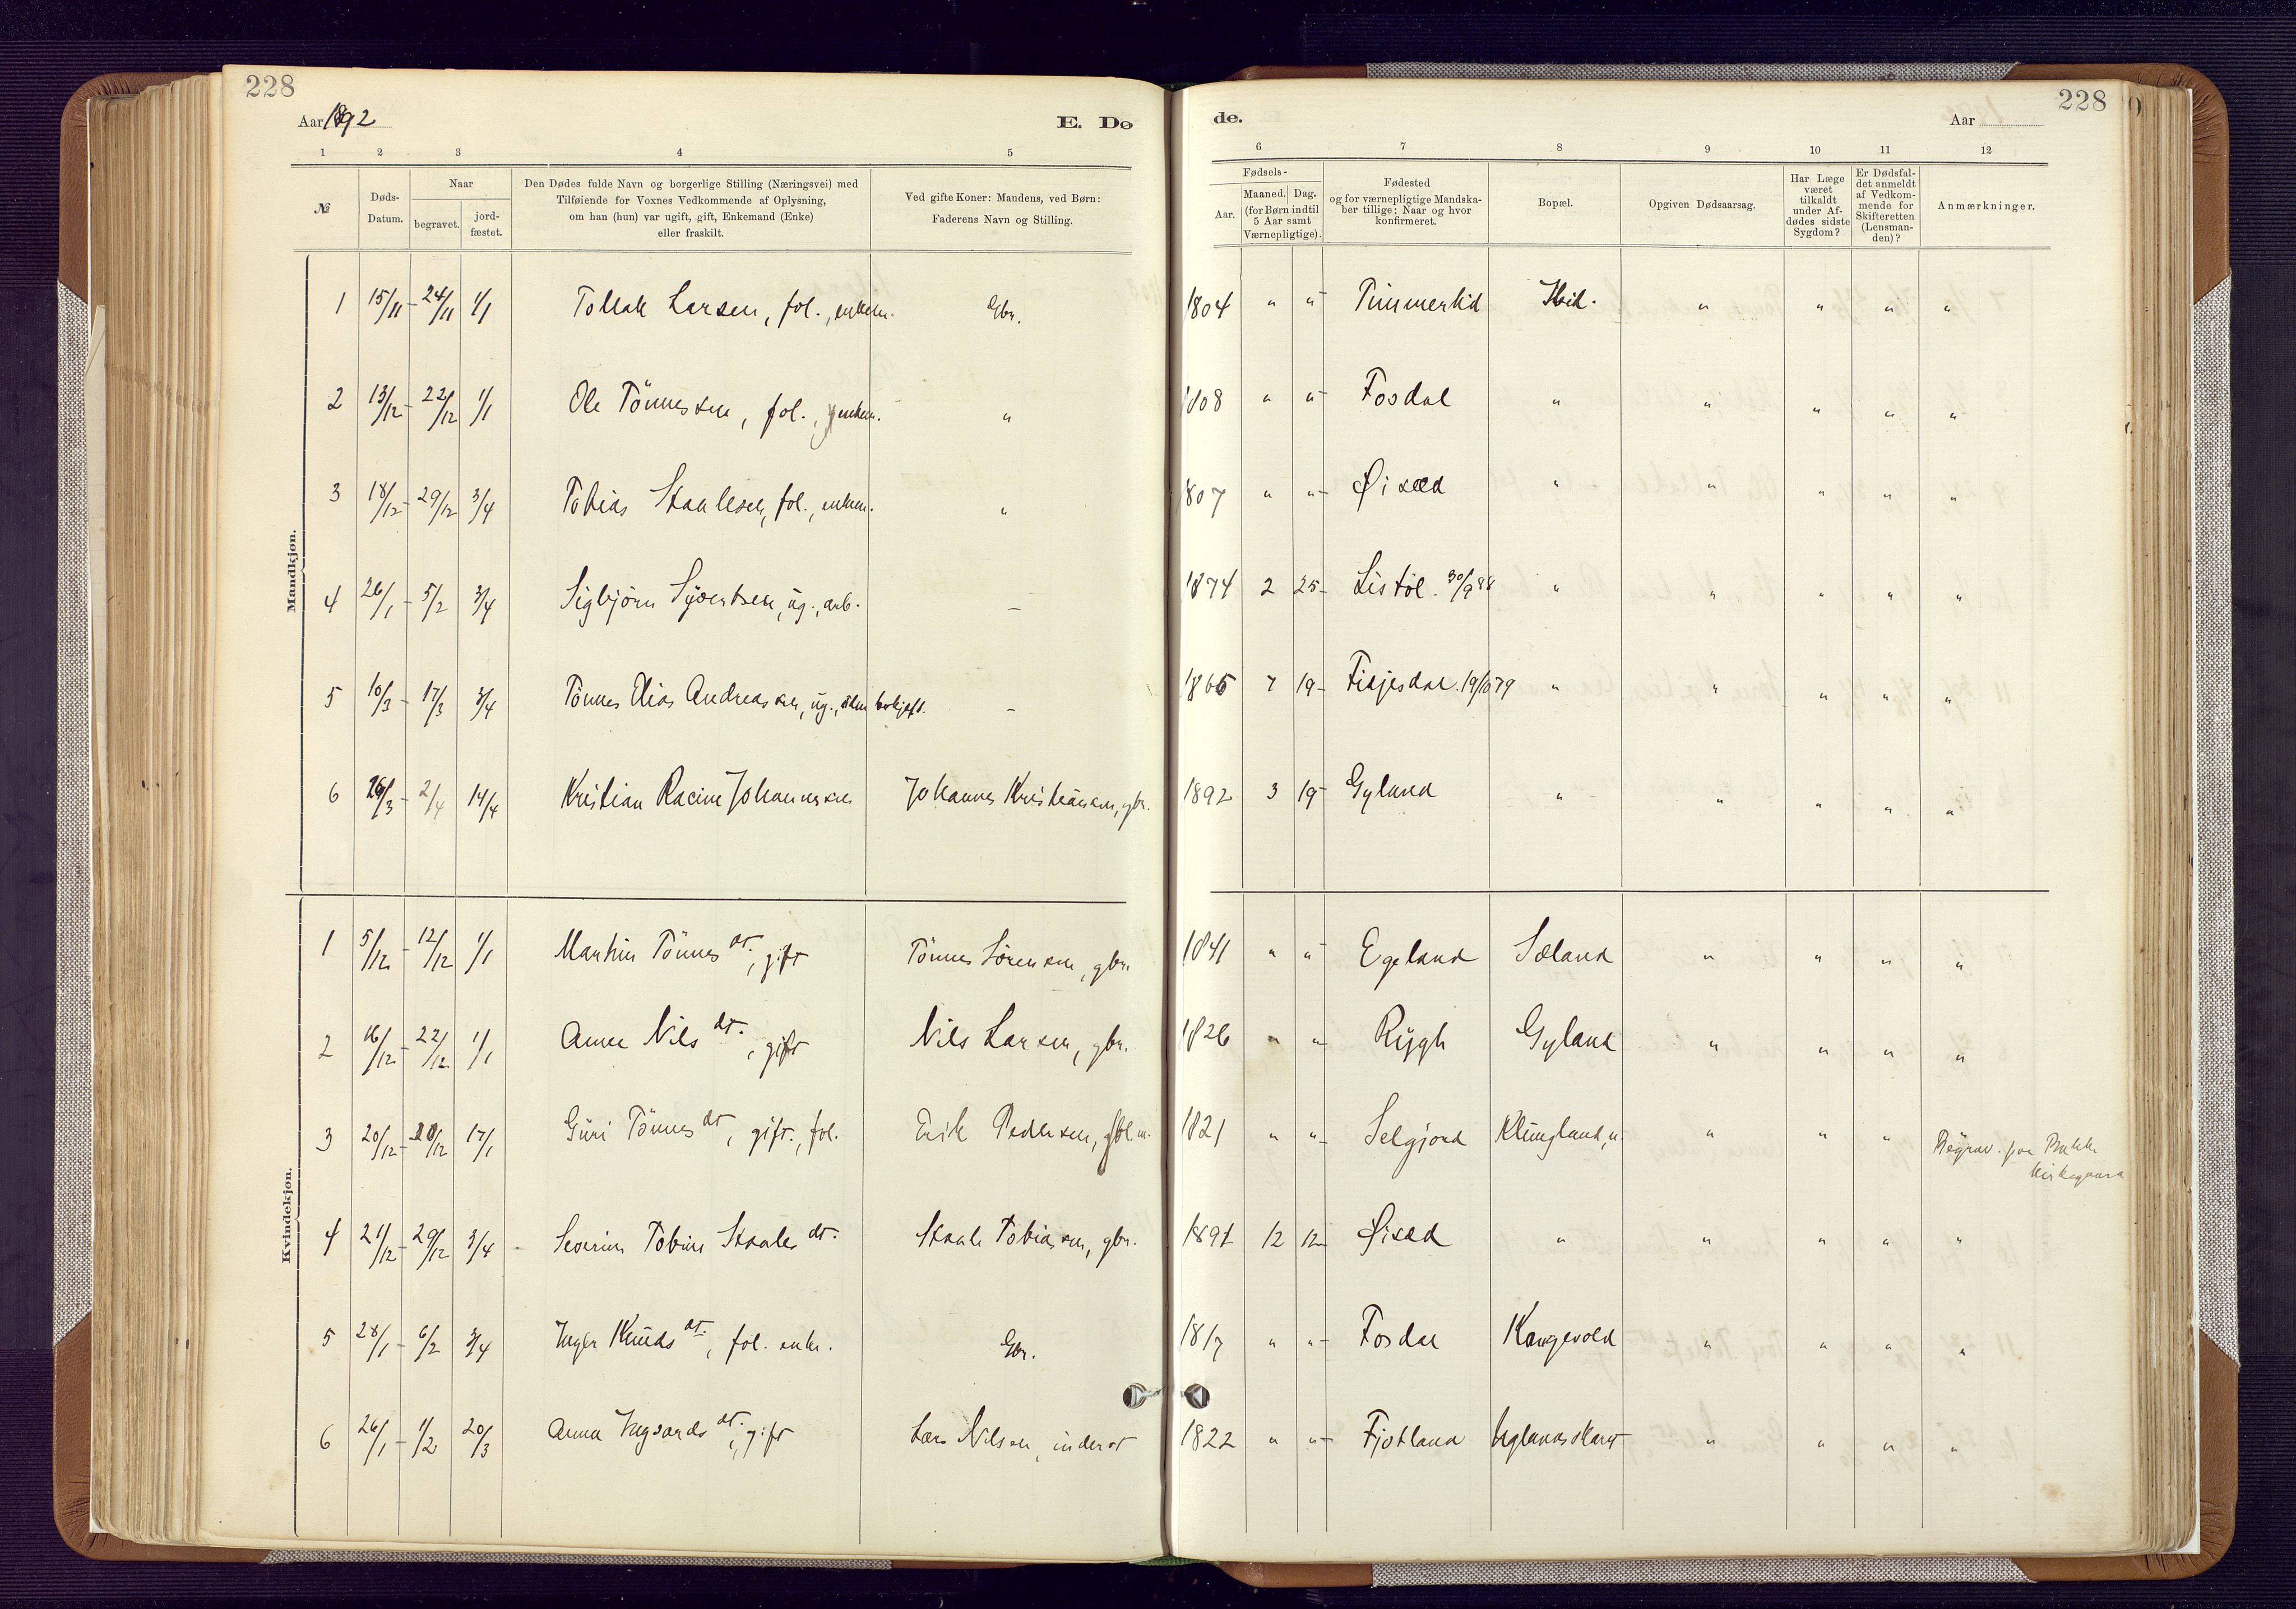 228
Aar 1892
E. Dø
1 2 3 4 5
№
Døds-Datum.
Naar
begravet.
jord-fæstet.
Den Dødes fulde Navn og borgerlige Stilling (Næringsvei) med
Tilføiende for Voxnes Vedkommende af Oplysning,
om han (hun) var ugift, gift, Enkemand (Enke)
eller fraskilt.
Ved gifte Koner: Mandens, ved Børn:
Faderens Navn og Stilling.
Mandkjøn.
1 15/11 - 24/11 1/1 Tollak Larsen, fol., enkem. Gbr.
2 13/12 - 22/12 1/1 Ole Tönnesen, fol., enkem. "
3 18/12 - 29/12 3/4 Tobias Staalesen, fol., enkem. "
4 26/1 - 5/2 3/4 Sigbjörn Syvertsen, ug., arb. –
5 10/3 - 17/3 3/4 Tönnes Elias Andreassen, ug., uden beskjeft. –
6 26/3 - 2/4 14/4 Kristian Racin Johannesen Johannes Kristiansen, gbr.
Kvindekjøn.
1 5/12 - 12/12 1/1 Martin Tönnes dt., gift Tönnes Sörensen, gbr.
2 16/12 - 22/12 1/1 Anne Nils dt., gift Nils Larsen, gbr.
3 20/12 - /12 17/1 Guri Tönnes dt, gift., fol. Erik Pedersen,
4 21/12 - 29/12 3/4 Severine Tobine Staales dt. Staale Tobiassen, gbr.
5 28/1 - 6/2 3/4 Inger Knuds dt., fol. enke. Gbr.
6 26/1 - 1/2 20/3 Anna Ingvards dt., gift Lars Nilsen, inderst
de.
228
Aar
6 7 8 9 10 11 12
Fødsels-
Aar.
Maaned. Dag.
(for Børn indtil
5 Aar samt
Værnepligtige).
Fødested
og for værnepligtige Mandska-
ber tillige: Naar og hvor
konfirmeret.
Bopæl.
Opgiven Dødsaarsag.
Har Læge
været
tilkaldt
under Af-
dødes sidste
Sygdom?
Er Dødsfal-
det anmeldt
af Vedkom-
mende for
Skifteretten
(Lensman-
den)?
Anmærkninger.
1804 " " Timmerlid Ibid. " " " "
1808 " " Fosdal " " " " "
1807 " " Øisæd " " " " "
1874 2 25 Listöl. 30/9 88 " " " " "
1865 7 19 Fidjedal. 19/10 79 " " " " "
1892 3 19 Gyland " " " " "
1841 " " Egeland Sæland " " " "
1826 " " Rygh Gyland " " " "
1821 " " Selgjord Klungland, n. " " " Begrav. paa Bakke
kirkegaard
1891 12 12 Øisæd " " " " "
1817 " " Fosdal Kongevold " " " "
1822 " " Fjotland " " " "